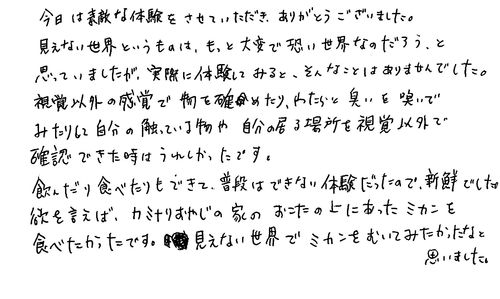 今日は素敵な体験をさせていただき、ありがとうございました。
見えない世界というものは、もっと大変で恐い世界なのだろう、と
思っていましたが、実際に体験してみると、そんなことはありませんでした。
視覚以外の感覚で物を確かめたり、やたらと臭いを嗅いで
みたりして自分の触っている物や自分の居る場所を視覚以外で
確認できた時はうれしかったです。
飲んだり食べたりもできて、普段はできない体験だったので、新鮮でした
欲を言えば、カミナリおやじの家のおこたの上にあったミカンを
食べたかったです。見えない世界でミカンをむいてみたかったなと
思いました。